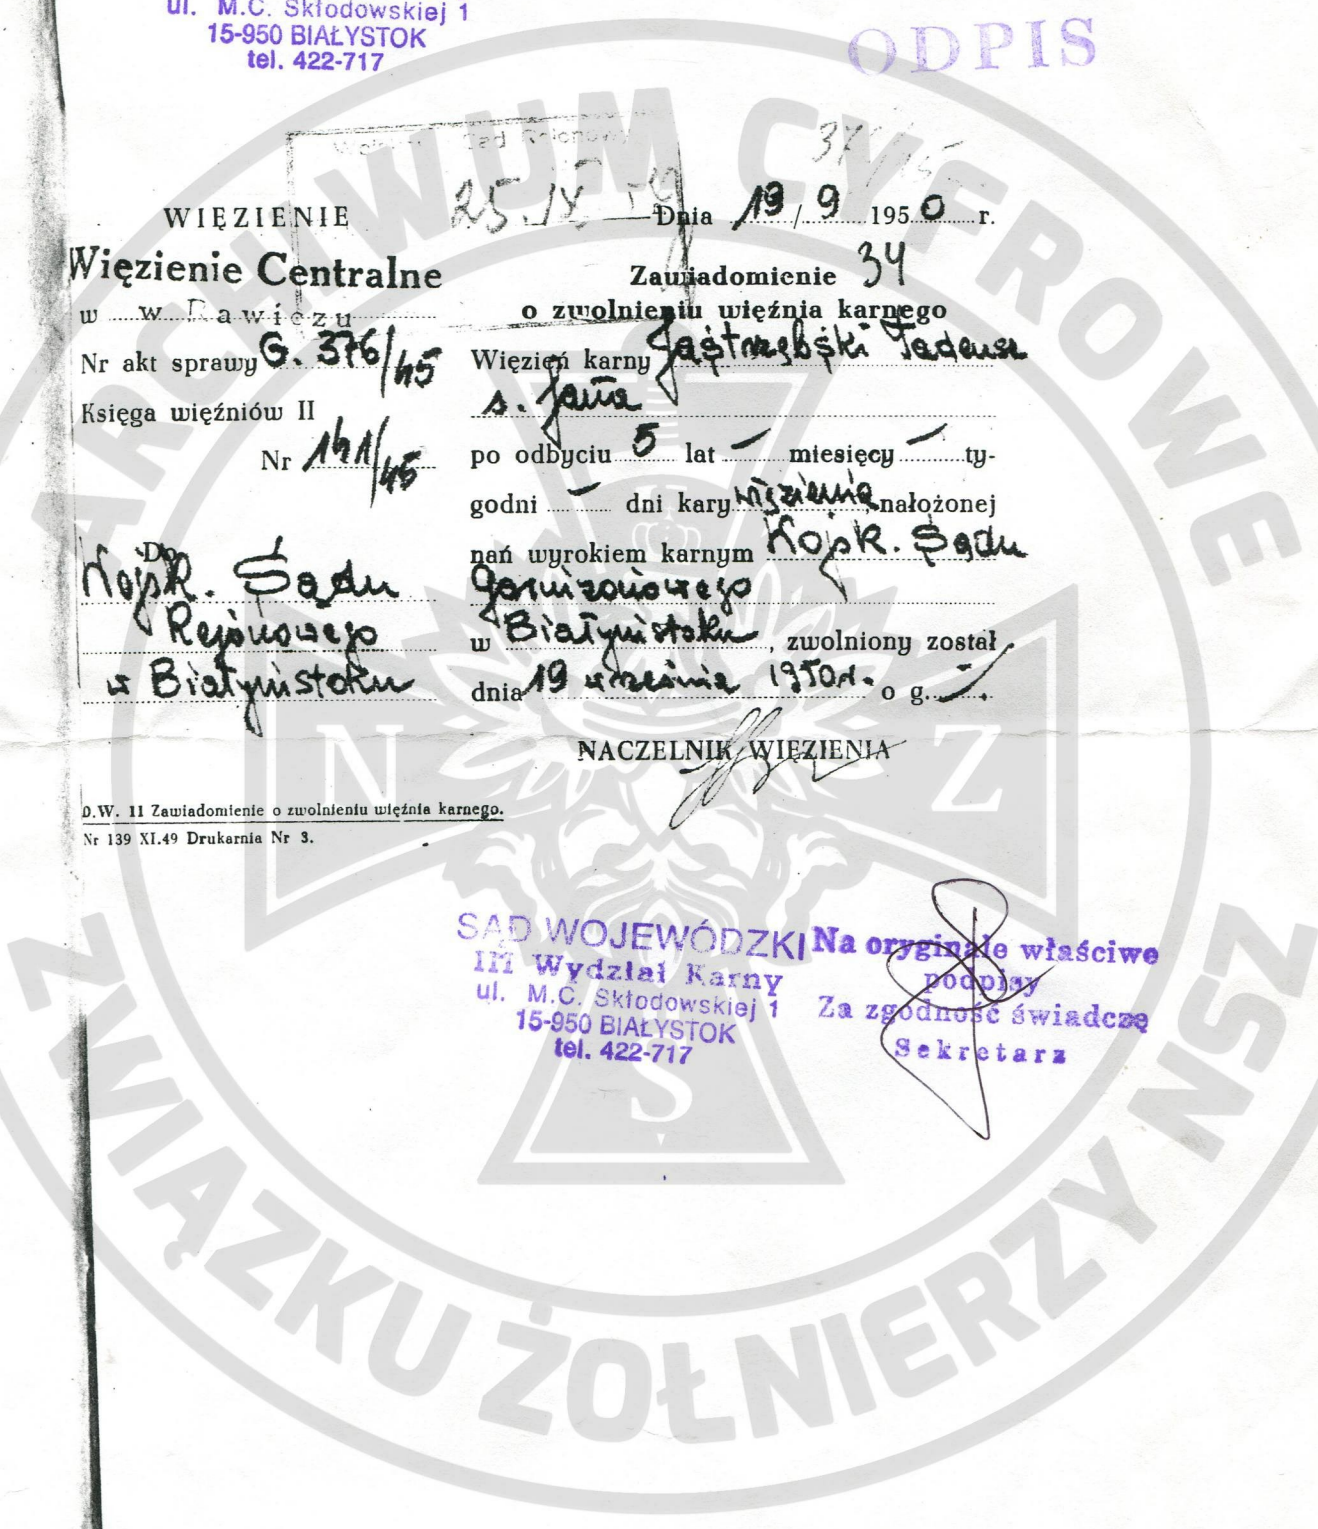 ul. M.C. Skłodowskiej 1
15-950 BIAŁYSTOK
tel. 422-717
ODPIS
25.IX
WIĘZIENIE
Dnia 19/9 1950 r.
Więzienie Centralne
w w Rawiczu
Nr akt sprawy G. 376/45
Księga więźniów II
Nr 141/45
Do
Wojsk. Sądu
Rejonowego
w Białymstoku
Zawiadomienie 34
o zwolnieniu więźnia karnego
Więzień karny Jastrzębski Tadeusz
s. Jana
po odbyciu 5 lat — miesięcy — ty-
godni — dni kary więzienia nałożonej
nań wyrokiem karnym Wojsk. Sądu
Garnizonowego
w Białymstoku, zwolniony został
dnia 19 września 1950 r. o g. —.
NACZELNIK WIĘZIENIA
D.W. 11 Zawiadomienie o zwolnieniu więźnia karnego.
Nr 139 XI.49 Drukarnia Nr 3.
SĄD WOJEWÓDZKI
III Wydział Karny
ul. M.C. Skłodowskiej 1
15-950 BIAŁYSTOK
tel. 422-717
Na oryginale właściwe
podpisy
Za zgodność świadczę
Sekretarz
ARCHIWUM CYFROWE
ZWIĄZKU ŻOŁNIERZY NSZ
N Z
S